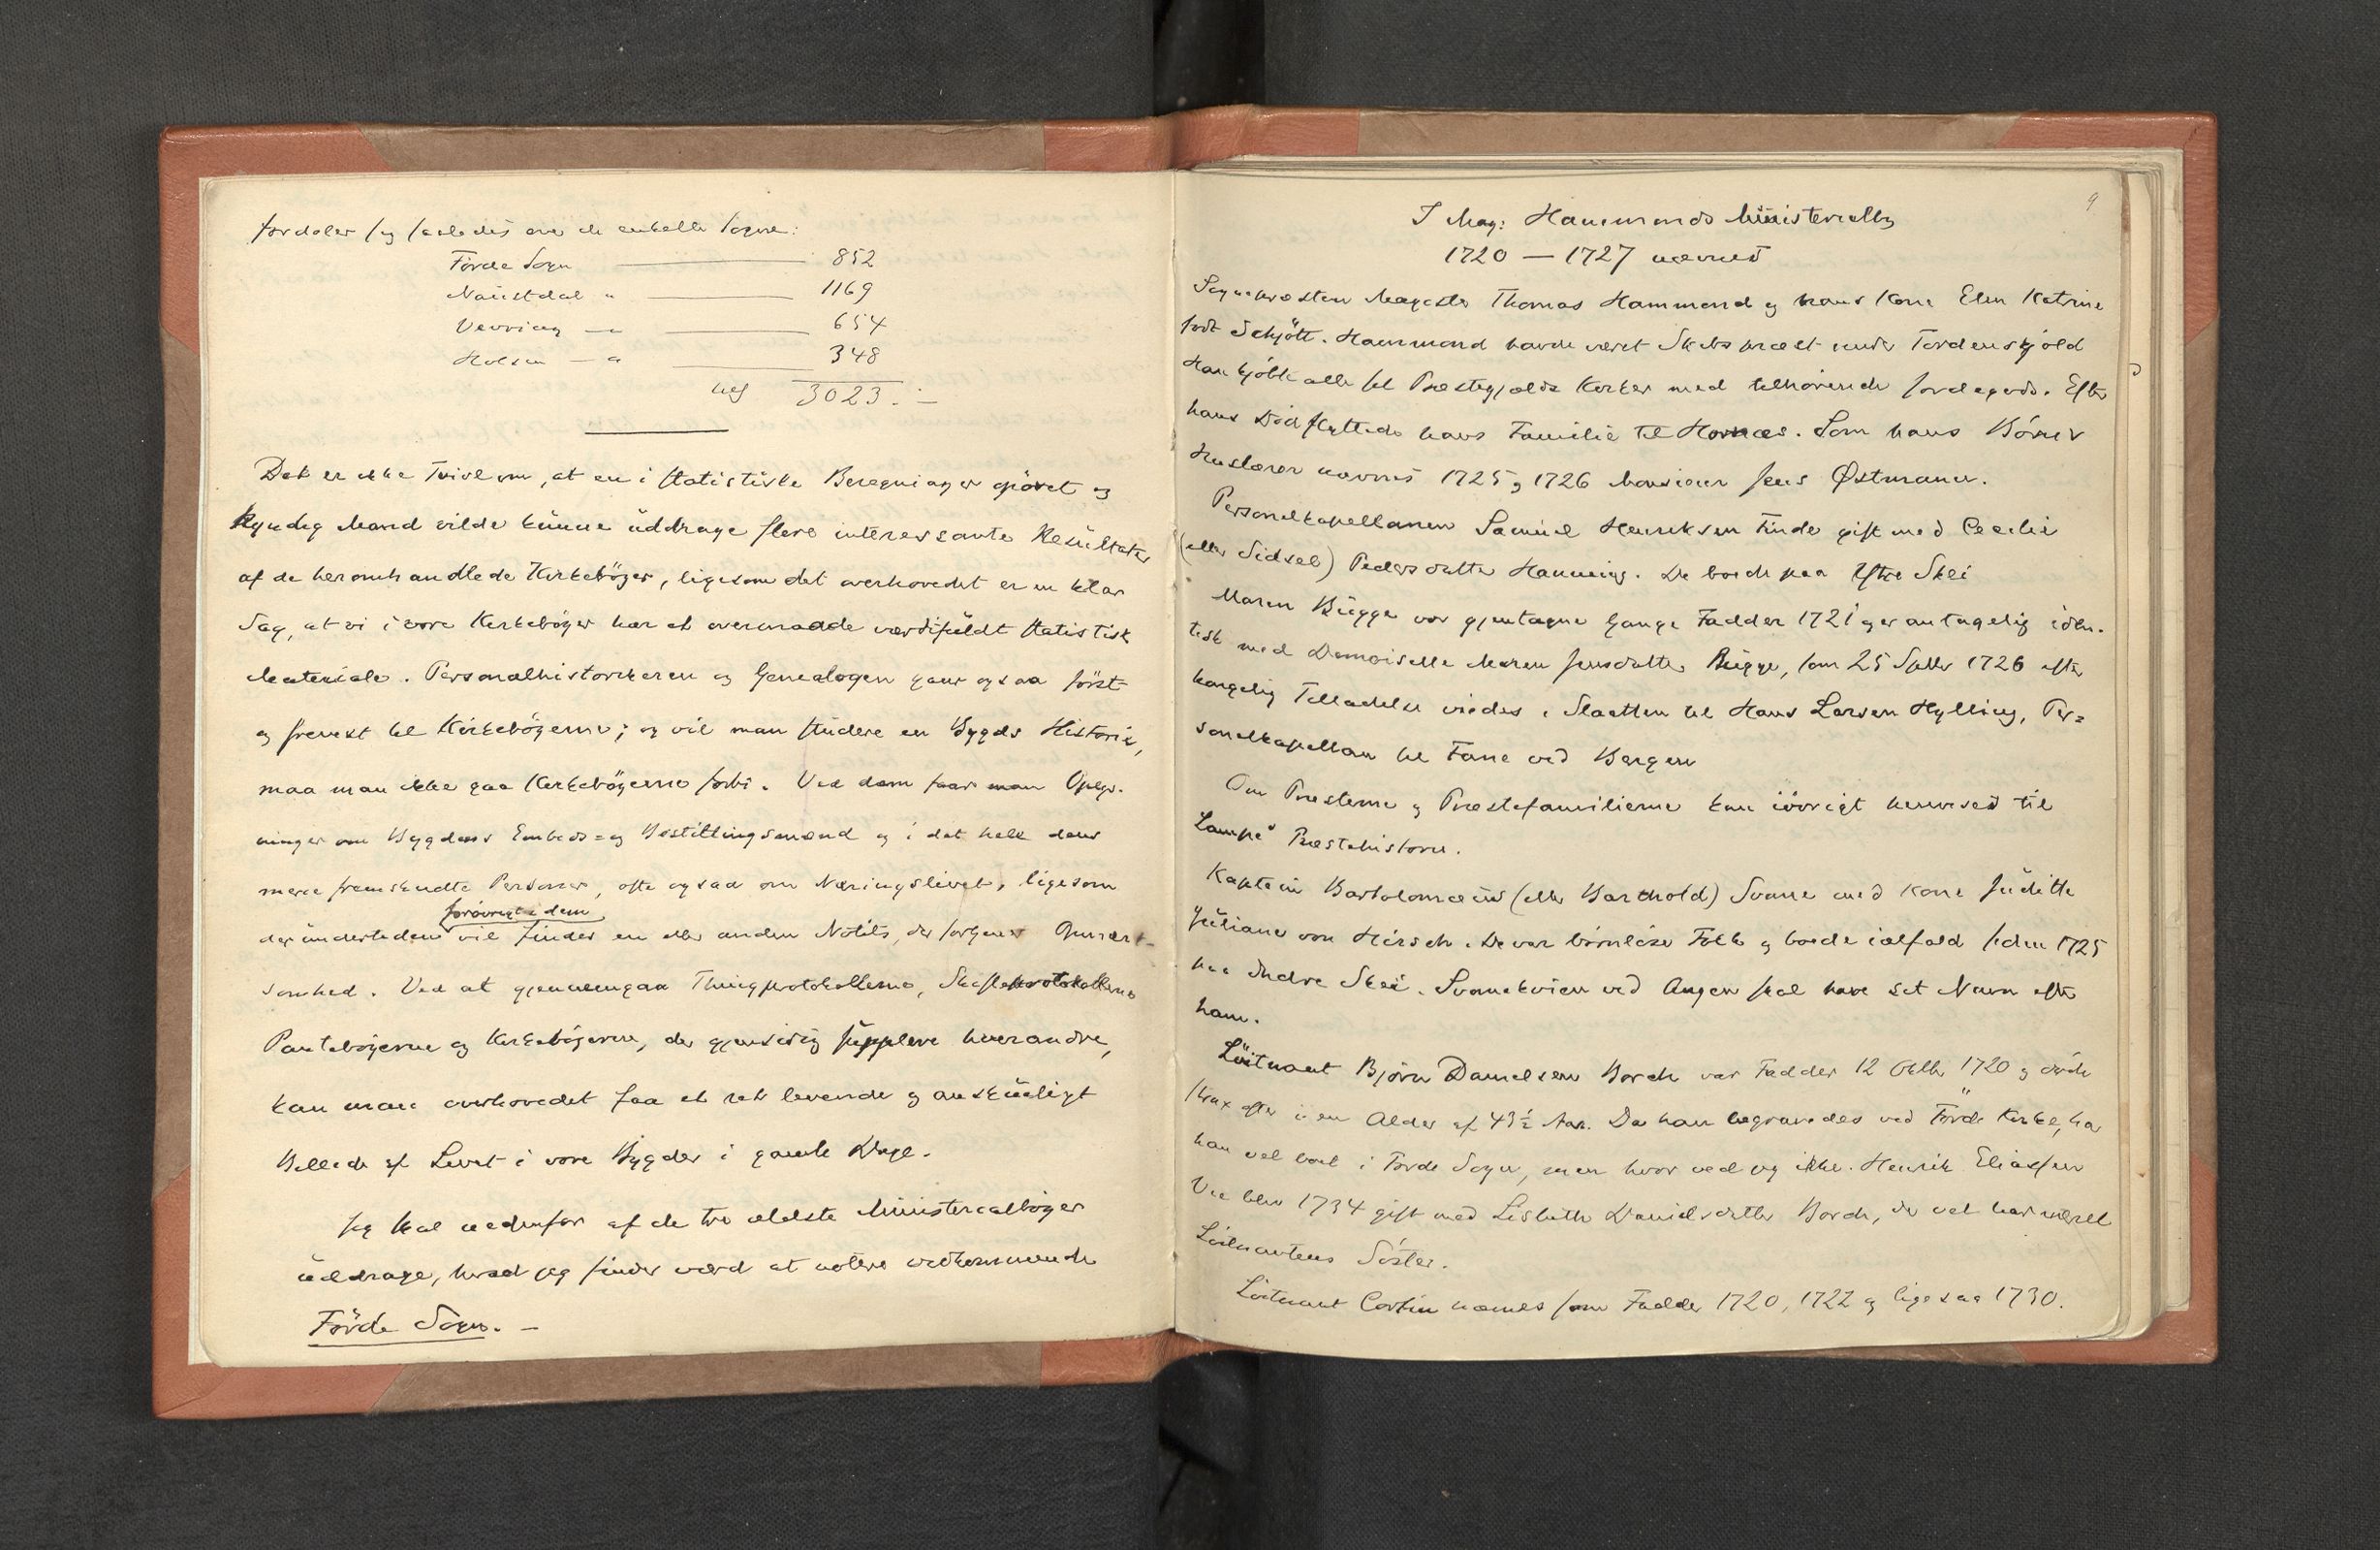 fordeler sig saaledes over de enkelte Sogne:
Förde Sogn — 852
Naustdal " — 1169
Vevring — " — 654
Holsen — " 348
3023. —
Det er ikke Tvivl om, at en i statistiske Beregninger øvet og
kyndig Mand vilde kunne uddrage flere interessante Resultater
af de her omhandlede Kirkebøger, ligesom det overhovedet er en klar
Sag, at vi i vore Kirkebøger har et overmaade værdifuldt statistisk
Materiale. Personalhistorikeren og Genealogen gaar ogsaa först
og fremst til Kirkebögerne; og vil man studere en Bygds Historie,
maa man ikke gaa Kirkebögerne forbi. Ved dem faar man Oplys-
ninger om Bygdens Embeds- og Bestillingsmænd og i det hele dens
mere fremskudte Personer, ofte ogsaa om Næringslivet, ligesom
forövrigt i dem
der undertiden vil findes en eller anden Notits, der fortjener Opmærk-
somhed. Ved at gjennemgaa Thingprotokollerne, Skifteprotokollerne
Pantebögerne og Kirkebögerne, der gjensidig supplere hverandre,
kan man overhovedet faa et ret levende og anskueligt
Billede af Livet i vore Bygder i gamle Dage.
Jeg skal nedenfor af de tre ældste Ministerialböger
uddrage, hvad jeg finder værd at notere vedkommende
Förde Sogn. —
9
I Mag: Hammonds Ministerialbog
1720 — 1727 nævnes
Sognepræsten Magister Thomas Hammond og hans Kone Elen Katrine
født Schjött. Hammond havde været Skibspræst under Tordenskjold
Han kjöbte alle Præstegjælds Kirker med tilhørende Jordegods. Efter
hans Död flyttede hans Familie til Hornæs. Som hans Börns
Huslærer nævnes 1725 og 1726 Monsieur Jens Østmann.
Personelkapellanen Samuel Henriksen Finde gift med Cecilie
(eller Sidsel) Pedersdatter Hanning. De boede paa Ytre Skei
Maren Bugge var gjentagne Gange Fadder 1721 og er antagelig iden-
tisk med Demoiselle Maren Jensdatter Bugge, som 25 Septbr 1726 efter
kongelig Tilladelse viedes i Slaatten til Hans Larsen Hylling, Per-
sonelkapellan til Fane ved Bergen
Om Presterne og Præstefamilierne kan iövrigt henvises til
Lampe's Præstehistorie.
Kaptein Bartolomæus (eller Barthold) Svane med Kone Juditte
Juliane von Hirsch. De var börnlöse Folk og boede ialfald siden 1725
paa Indre Skei. Svanekvien ved Angen skal have sit Navn efter
ham.
Löitnant Björn Danielsen Borch var Fadder 12 Oktbr 1720 og døde
strax efter i en Alder af 43½ Aar. Da han begravedes ved Förde Kirke, har
han vel boet i Förde Sogn, men hvor ved jeg ikke. Henrik Eliassen
Vie blev 1734 gift med Lisbeth Danielsdatter Borch, der vel har været
Löitnantens Söster.
Löitnant Corfin nævnes som Fadder 1720, 1722 og ligesaa 1730.